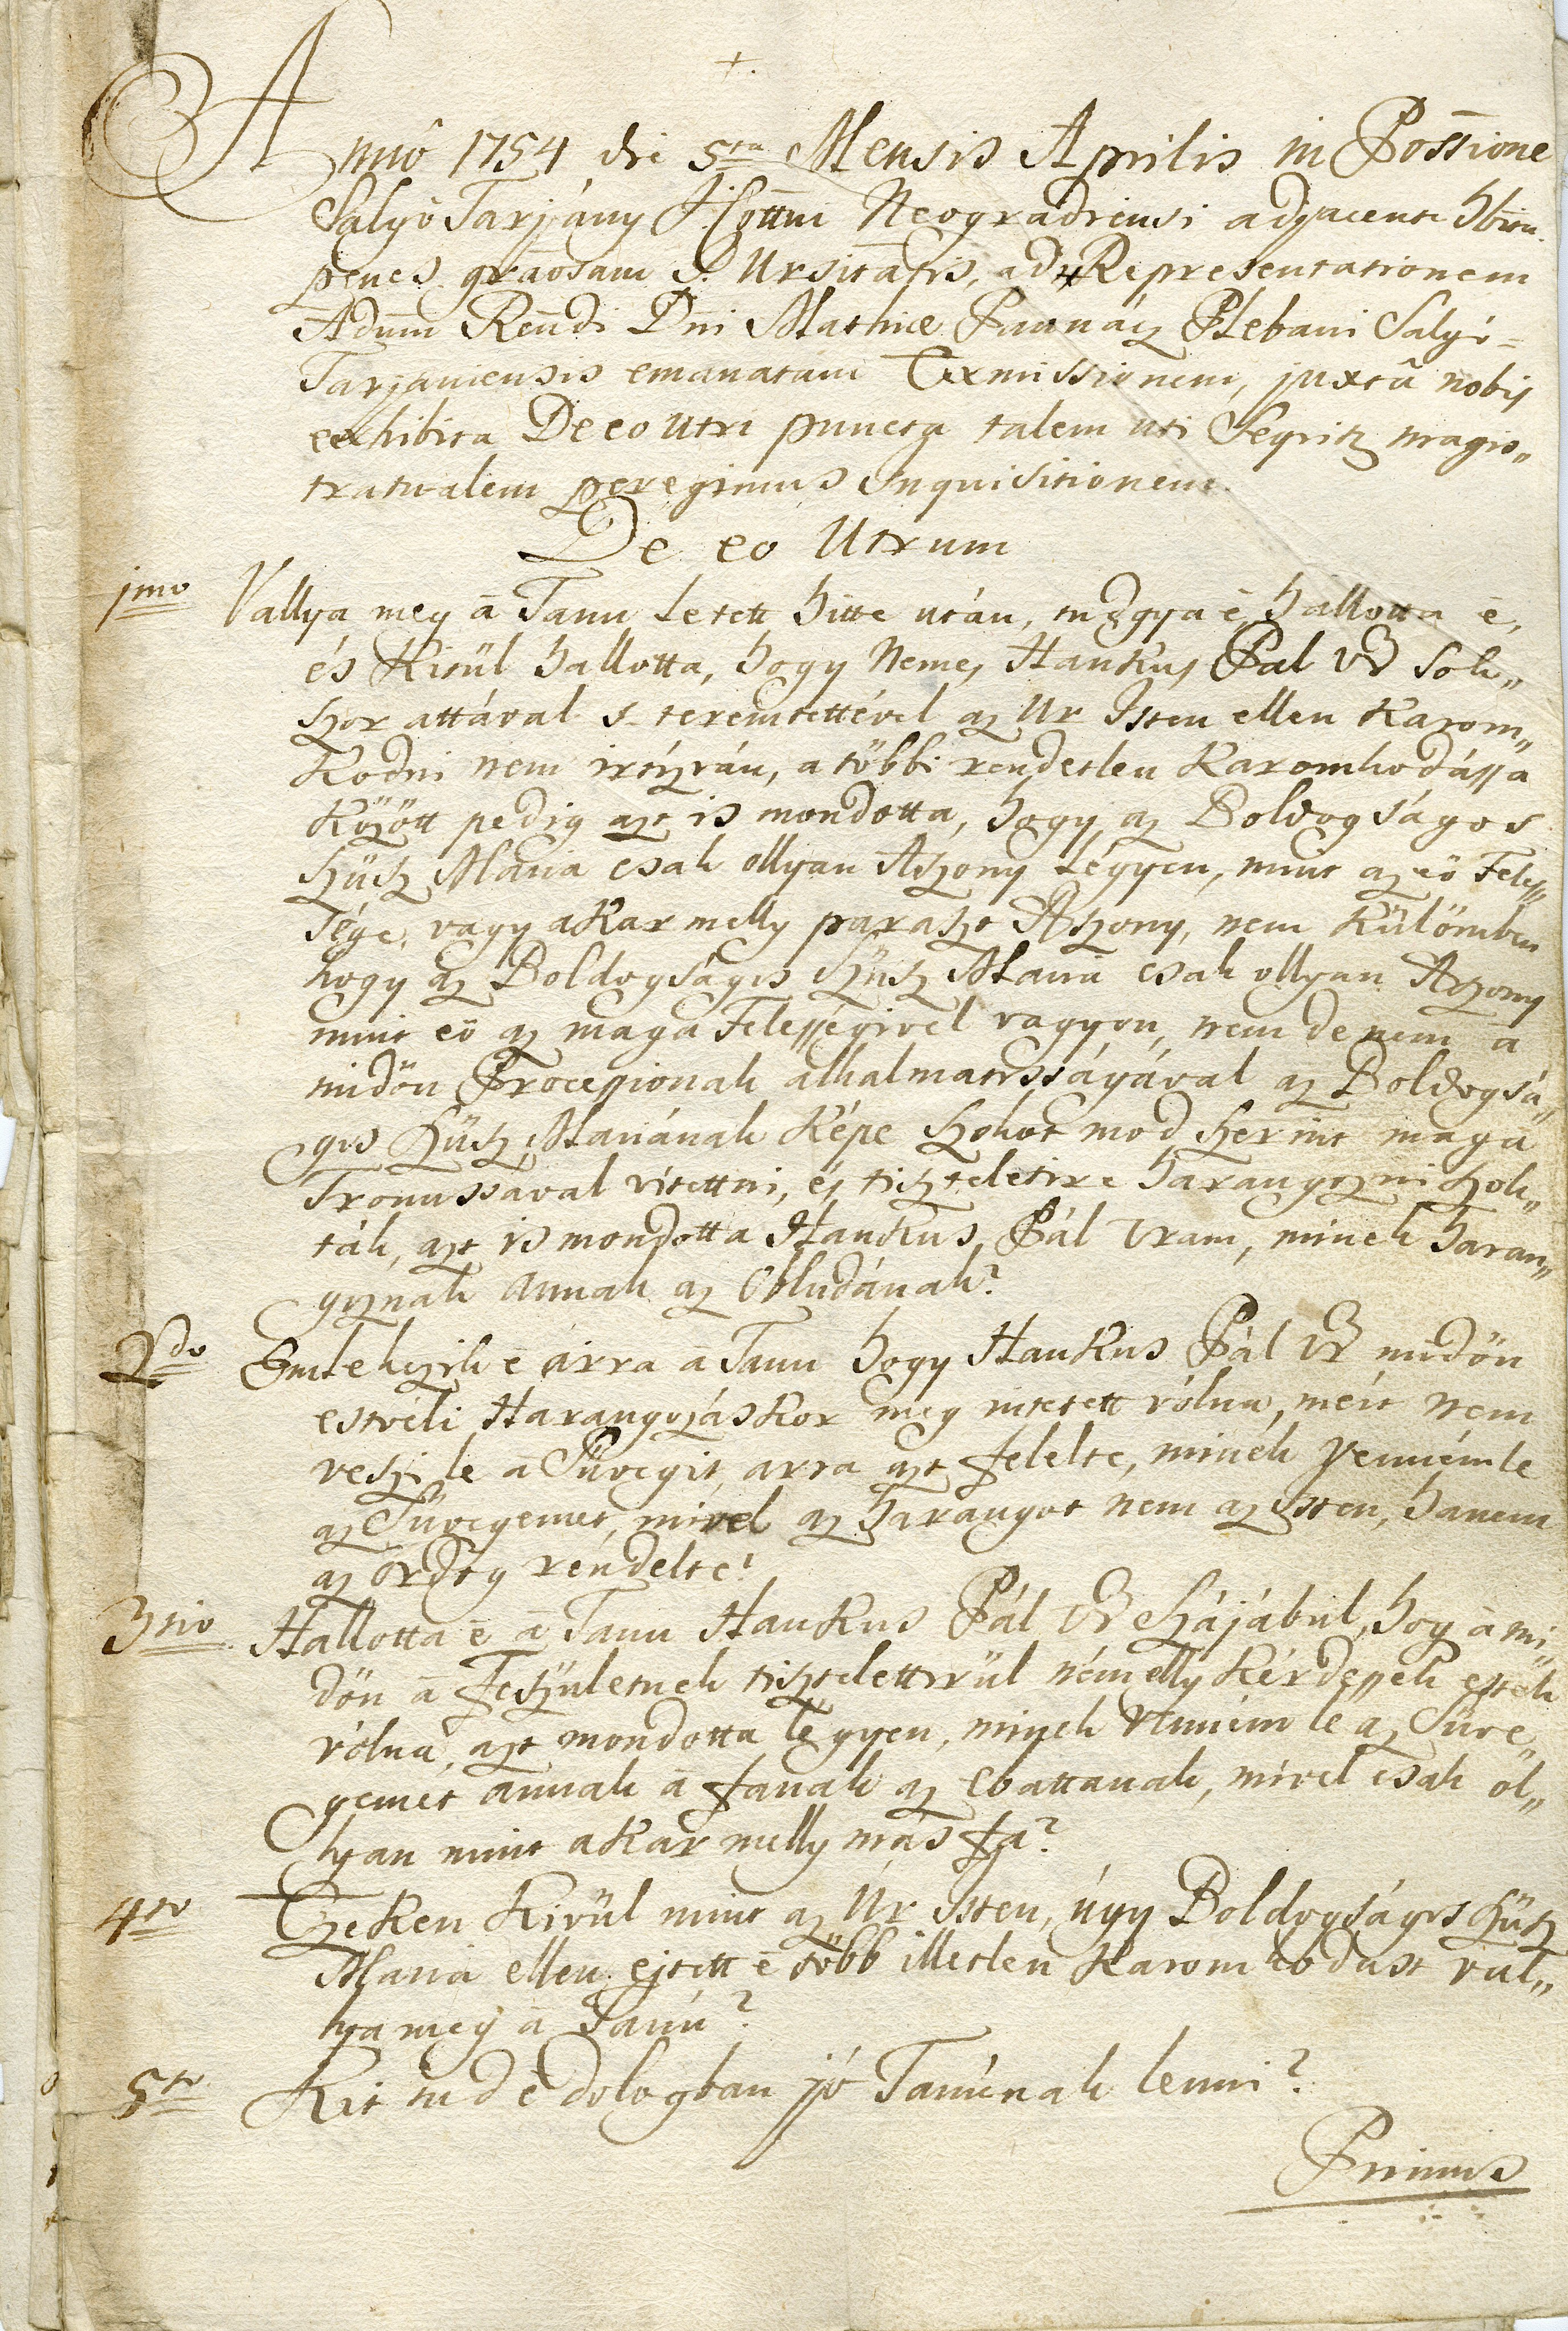 Annô 1754 die 5ta Mensis Aprilis in Possione
Salgó Tarjány I. Cottui Neogradiensi adjacente hbita
penes graosam I. Ursitatis, ad Representationem
Adum Rendi Dni Mathiæ Plebani Salgó-
Tarjaniensis emanatam Exmissionem, juxtâ nobis
exhibita De eo Utri puncta talem uti Seqvitz magis„
tratualem peregimus Inquisitionem.
De eo Utrum
1mo Vallya meg ā Tanu le tett hitte után, tudgya é, hallotta é,
és Kitül hallotta, hogy Nemes Hankus Pal Ur sok„
szor attával s teremtettével az Ur Isten ellen Karom„
Kodni nem irtózván, a többi rendetlen Karomkodássa
Között pedig azt is mondotta, hogy az Boldogságos
Szüsz Mária csak ollyan Aszony légyen, mint az eö Feles„
sége, vagy akar melly paraszt Aszony, nem külömben
hogy az Boldogságos Szüsz Maria csak ollyan Aszony
mint eö az maga Felességivel vagyon, nem de nem ā
midőn Processionak alkalmatosságával az Boldogsá„
gos Szüsz Máriának Képe szokot mod szerint maga
Tronussával vitettni, és tiszteletire harangozni szok„
ták, azt is mondotta Hankus Pál Uram, minek haran„
goznak annak az Obludának?
2do Emlekezik é arra ā Tanu hogy Hankus Pál Ur midőn
estvéli Harangozáskor meg intetett vólna, mért nem
veszi le ā Süvegit, arra azt felelte, minek venném le
az Süvegemet, mivel az harangot nem az Isten, hanem
az ördög rendelte?
3tio Hallotta é ā Tanu Hankus Pál Ur szájábul, hogy ā mi„
dőn ā feszületnek tisztelettirül némelly kérdessek estek
vólna, azt mondotta légyen, minek venném le az Süve„
gemet annak ā fának az ebattanak, mivel csak ol„
lyan mint akar melly más fa?
4to Ezeken kivül mint az Úr Isten, úgy Boldogságos Szüsz
Maria ellen ejtett é több illetlen Karomkodást val„
lya meg ā Tanú?
5to Kit tud é dologban jó Tanúnak lenni?
Primus